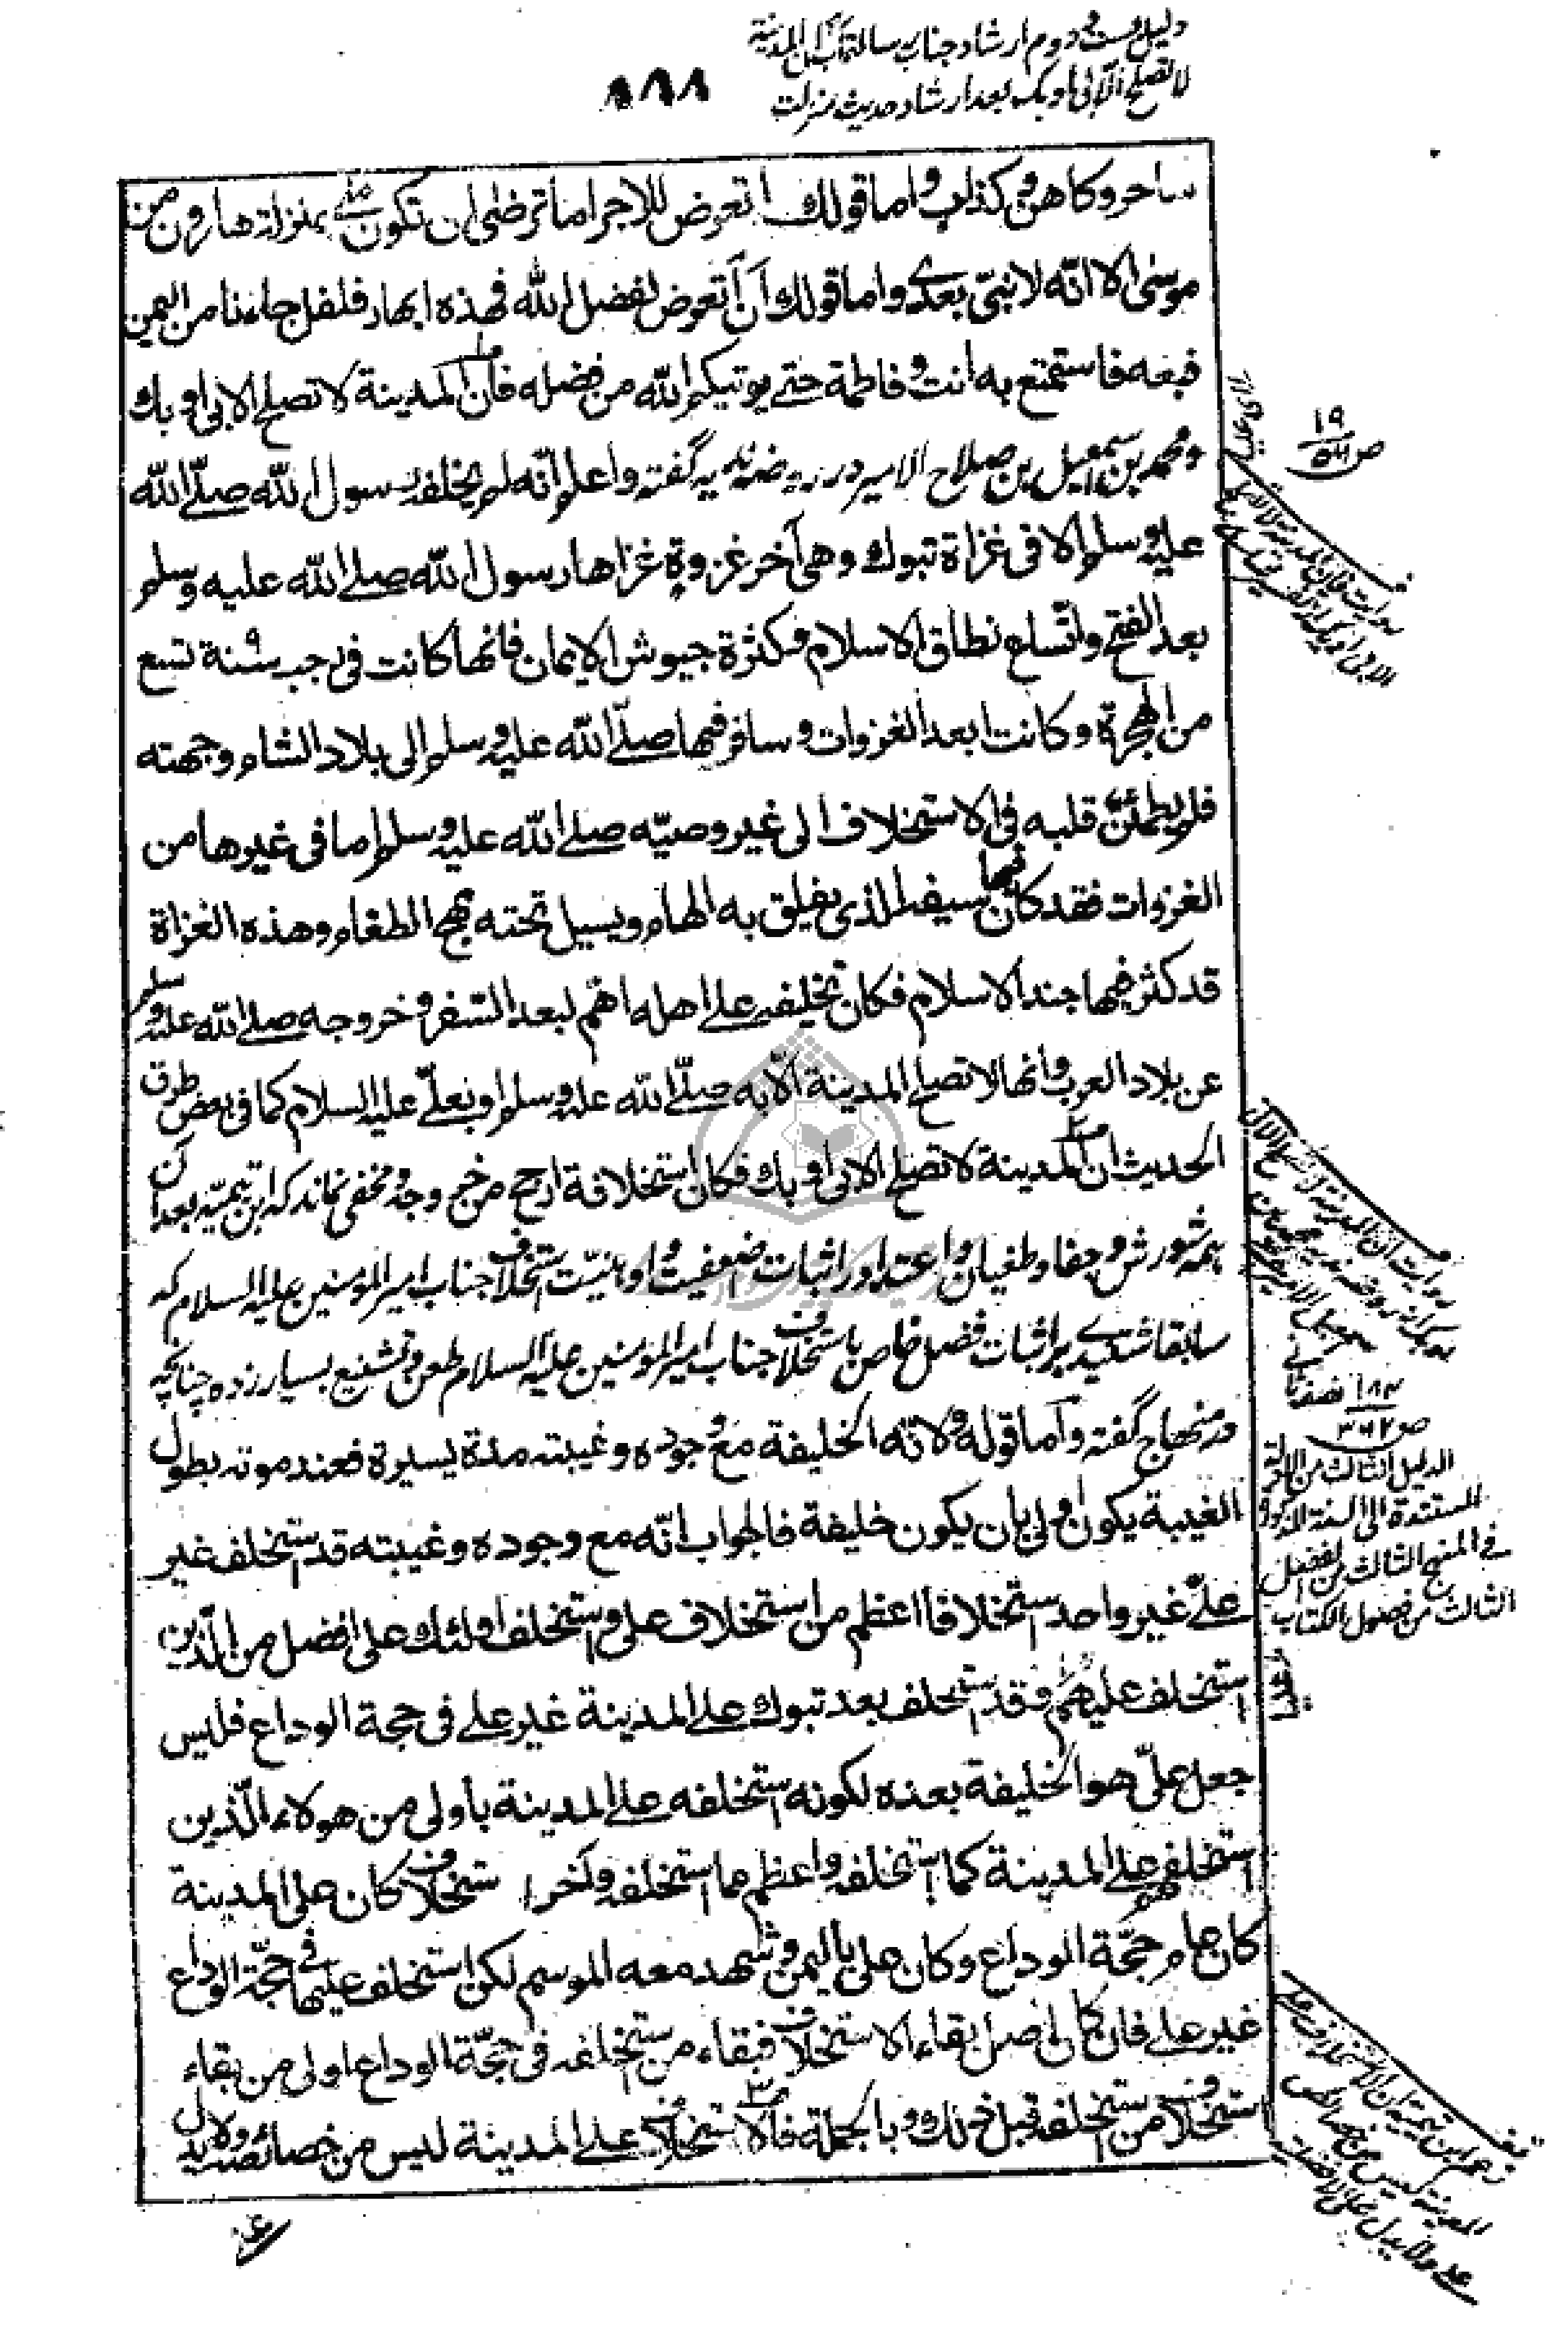 دلیل بست و دوم ارشاد جناب رسالتمآب ان المدینة
لا تصلح الا بی او بک بعد ارشاد حدیث منزلت
۸۸۸
ساحر وکاهن وکذاب واما قولک اتعرض للاجر اما ترضی ان تکون منی بمنزلة هارون من
موسی الا انّه لا نبیّ بعدی واما قولک ان أتعرض لفضل الله فهذه ابهار فلفل جاءنا من الیمن
فبعه فاستمتع به انت وفاطمة حتی یوتیکم الله من فضله فان المدینة لا تصلح الا بی او بک
ومحمد بن اسمعیل بن صلاح الامیر در روضه ندیه گفته واعلم انّه لم یخلفه رسول الله صلّی الله
علیه وسلم الا فی غزاة تبوک وهی آخر غزوة غزاها رسول الله صلی الله علیه وسلم
بعد الفتح واتساع نطاق الاسلام وکثرة جیوش الایمان فانها کانت فی رجب سنة تسع
من الهجرة وکانت ابعد الغزوات وسافر فیها صلّی الله علیه وسلم الی بلاد الشام وجهته
فلم یطمئن قلبه فی الاستخلاف الی غیر وصیّه صلی الله علیه وسلم اما فی غیرها من
الغزوات فقد کان فیها سیفه الذی یفلق به الهام ویسیل تحته مهج الطغام وهذه الغزاة
قد کثر فیها جند الاسلام فکان تخلیفه علی اهله اهم لبعد السفر وخروجه صلی الله علیه وسلم
عن بلاد العرب وانها لا تصلح المدینة الّا به صلّی الله علیه وسلم او بعلیّ علیه السلام کما فی بعض طرق
الحدیث ان المدینة لا تصلح الا بی او بک فکان استخلافه ارجح من خروجه ومخفی نماند که ابن تیمیّه بعد ان
همه شورش وجفا وطغیان واعتدا ور اثبات اضعفیت واوهنیّت استخلاف جناب امیر المومنین علیه السلام که
سابقا شنیدی بر اثبات فضل خاص باستخلاف جناب امیر المومنین علیه السلام طعن وتشنیع بسیار زده چنانچه
در منهاج گفته وأما قوله ولانّه الخلیفة مع وجوده وغیبته مدة یسیرة فعند موته بطول
الغیبة یکون أولی بأن یکون خلیفة فالجواب انّه مع وجوده وغیبته قد استخلف غیر
علیّ غیر واحد استخلافا اعظم من استخلاف علی واستخلف اولئک علی افضل من الذین
استخلف علیهم وقد استخلف بعد تبوک علی المدینة غیر علی فی حجة الوداع فلیس
جعل علیّ هو الخلیفة بعده لکونه استخلفه علی المدینة بأولی من هولاء الّذین
استخلفهم علی المدینة کما استخلفه واعظم مما استخلفه وآخر استخلاف کان علی المدینة
کان عام حجّة الوداع وکان علی بالیمن وشهد معه الموسم لکن استخلف علیها فی حجّة الوداع
غیر علی فان کان الاصل بقاء الاستخلاف فبقاء من استخلفه فی حجّة الوداع اولی من بقاء
استخلاف من استخلفه قبل ذلک وبالجملة فالاستخلاف علی المدینة لیس من خصائصه ولا یدل
روایت فان المدینة لا تصلح
الا بی او بک
الدلیل الثالث من الادلة
المستندة الی السنة المذکورة
فی المنهج الثالث من الفصل
الثالث من فصول الکتاب
زعم ابن تیمیه ان الاستخلاف علی
المدینة لیس من خصائص
علی ولا یدل علی الافضلیة